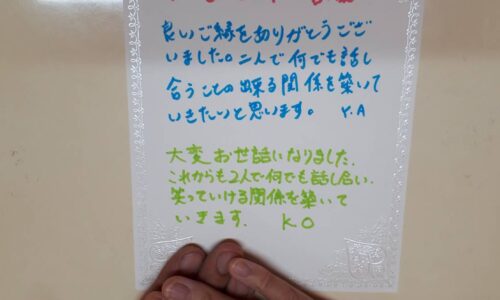 良いご縁をありがとうござ
いました。二人で何でも話し
合うことの出来る関係を築いて
いきたいと思います。 Y.A
大変お世話になりました.
これからも2人で何でも話し合い.
笑っていける関係を築いて
いきます. K O